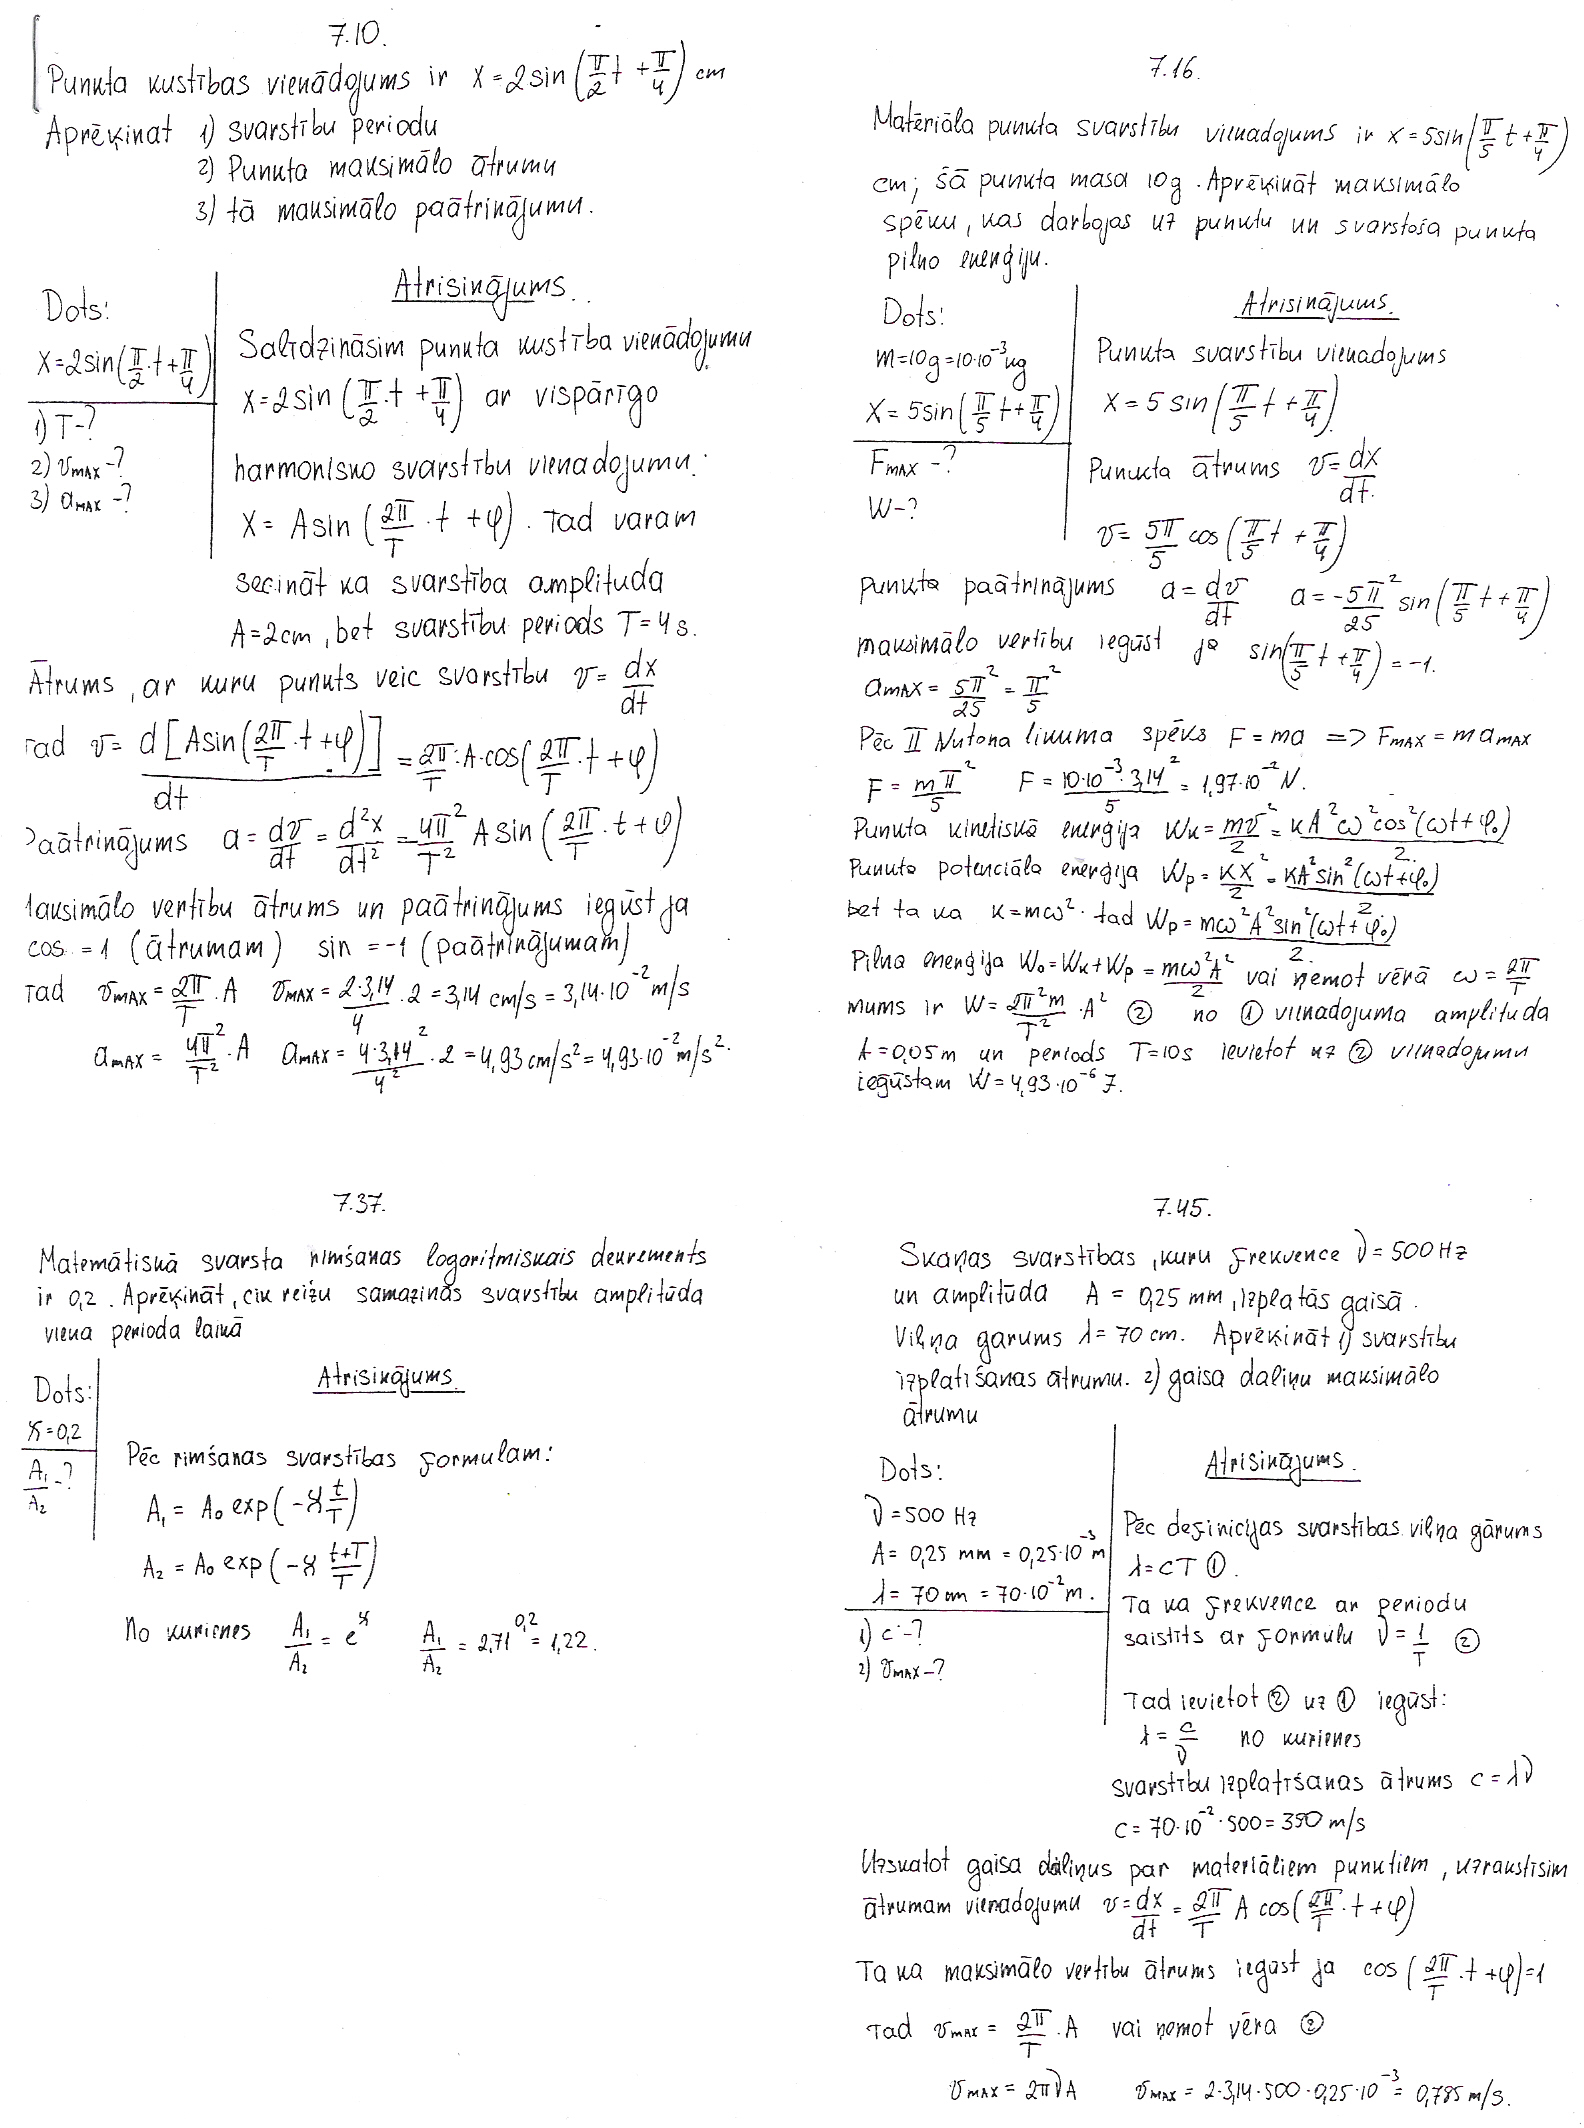 7.10.
Punkta kustības vienādojums ir x=2sin(π/2 t + π/4) cm
Aprēķinat 1) svarstību periodu
2) Punkta maksimālo ātrumu
3) tā maksimālo paātrinājumu.
Dots:
x=2sin(π/2·t+π/4)
1) T-?
2) υmax-?
3) amax-?
Atrisinājums.
Salīdzināsim punkta kustība vienādojumu
x=2sin(π/2·t+π/4) ar vispārīgo
harmonisko svarstību vienadojumu.
x= Asin(2π/T·t+φ). Tad varam
secināt ka svarstība amplituda
A=2cm, bet svarstību periods T=4s.
Ātrums, ar kuru punkts veic svarstību υ= dx/dt
Tad υ= d[Asin(2π/T·t+φ)]/dt = 2π/T·A·cos(2π/T·t+φ)
Paātrinājums a= dυ/dt = d²x/dt² = 4π²/T² A sin(2π/T·t+φ)
Maksimālo vertību ātrums un paātrinājums iegūst ja
cos =1 (ātrumam) sin =-1 (paātrinājumam)
Tad υmax= 2π/T·A υmax= 2·3,14/4·2=3,14 cm/s=3,14·10⁻² m/s
amax= 4π²/T²·A amax= 4·3,14²/4²·2=4,93cm/s²=4,93·10⁻² m/s².
7.16.
Matēriāla punkta svarstību vienadojums ir x=5sin(π/5 t+π/4)
cm; šā punkta masa 10g. Aprēķināt maksimālo
spēku, kas darbojas uz punktu un svarstoša punkta
pilno enerģiju.
Dots:
m=10g=10·10⁻³kg
x=5sin(π/5 t+π/4)
Fmax -?
W-?
Atrisinājums.
Punkta svarstību vienadojums
x=5 sin(π/5 t+π/4)
Punkta ātrums υ= dx/dt.
υ= 5π/5 cos(π/5 t+π/4)
punkta paātrinājums a= dυ/dt a= -5π²/25 sin(π/5 t+π/4)
maksimālo vertību iegūst ja sin(π/5 t+π/4)=-1.
amax= 5π²/25 = π²/5
Pēc II Nutona likuma spēks F=ma => Fmax=mamax
F= mπ²/5 F= 10·10⁻³·3,14²/5 = 1,97·10⁻² N.
Punkta kinetiskā enerģija Wk= mυ²/2 = kA²ω²cos²(ωt+φ₀)/2.
Punkta potenciāla enerģija Wp= kx²/2 = kA²sin²(ωt+φ₀)/2
bet ta ka k=mω². tad Wp= mω²A²sin²(ωt+φ₀)/2.
Pilna enerģija W₀=Wk+Wp= mω²A²/2 vai ņemot vērā ω= 2π/T
mums ir W= 2π²m/T²·A² ② no ① vienadojuma amplituda
A=0,05m un periods T=10s ievietot uz ② vienadojumu
iegūstam W=4,93·10⁻⁶ J.
7.37.
Matemātiskā svarsta rimšanas logoritmiskais dekrements
ir 0,2. Aprēķināt, cik reižu samazinās svarstību amplitūda
viena perioda laikā
Dots:
ϰ=0,2
A₁/A₂-?
Atrisinājums.
Pēc rimšanas svarstības formulam:
A₁= A₀ exp(-ϰ t/T)
A₂= A₀ exp(-ϰ (t+T)/T)
No kurienes A₁/A₂=e^ϰ A₁/A₂=2,71^0,2=1,22.
7.45.
Skaņas svarstības, kuru frekvence ν=500Hz
un amplitūda A= 0,25 mm, izplatās gaisā.
Viļņa garums λ=70cm. Aprēķināt 1) svarstību
izplatišanas ātrumu. 2) gaisa daliņu maksimālo
ātrumu
Dots:
ν=500 Hz
A= 0,25 mm = 0,25·10⁻³ m
λ= 70 cm = 70·10⁻² m.
1) c-?
2) υmax-?
Atrisinājums.
Pēc definicijas svarstības viļņa gārums
λ=cT ①.
Ta ka frekvence ar periodu
saistīts ar formulu ν= 1/T ②
Tad ievietot ② uz ① iegūst:
λ= c/ν no kurienes
svarstību izplatīšanas ātrums c=λν
c=70·10⁻²·500=350 m/s
Uzskatot gaisa daliņus par materiāliem punktiem, uzrakstīsim
ātrumam vienadojumu υ= dx/dt = 2π/T A cos(2π/T·t+φ)
Ta ka maksimālo vertību ātrums iegūst ja cos(2π/T·t+φ)=1
Tad υmax= 2π/T·A vai ņemot vēra ②
υmax= 2πνA υmax= 2·3,14·500·0,25·10⁻³= 0,785 m/s.